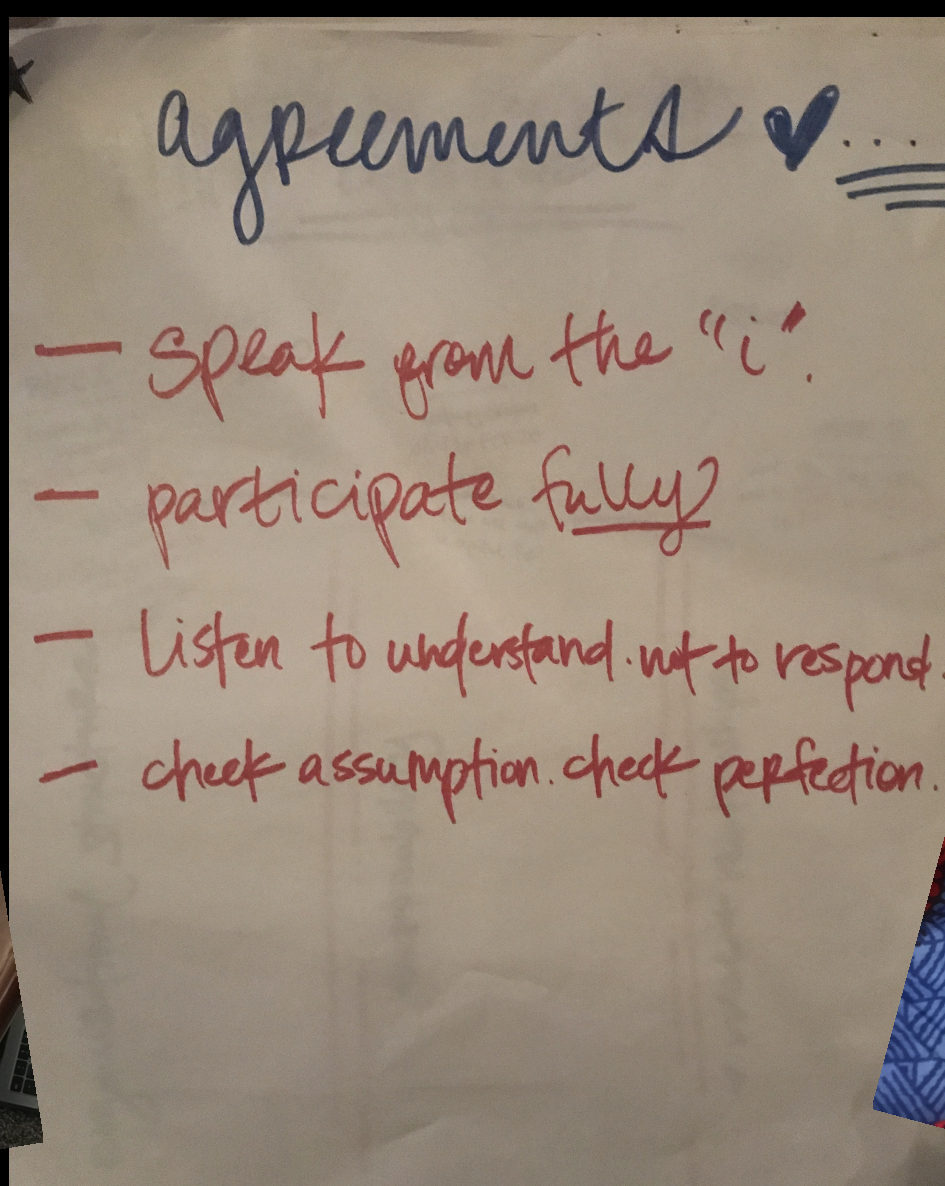 agreements ♥ ...
— speak from the "i".
— participate fully
— Listen to understand. not to respond.
— check assumption. check perfection.